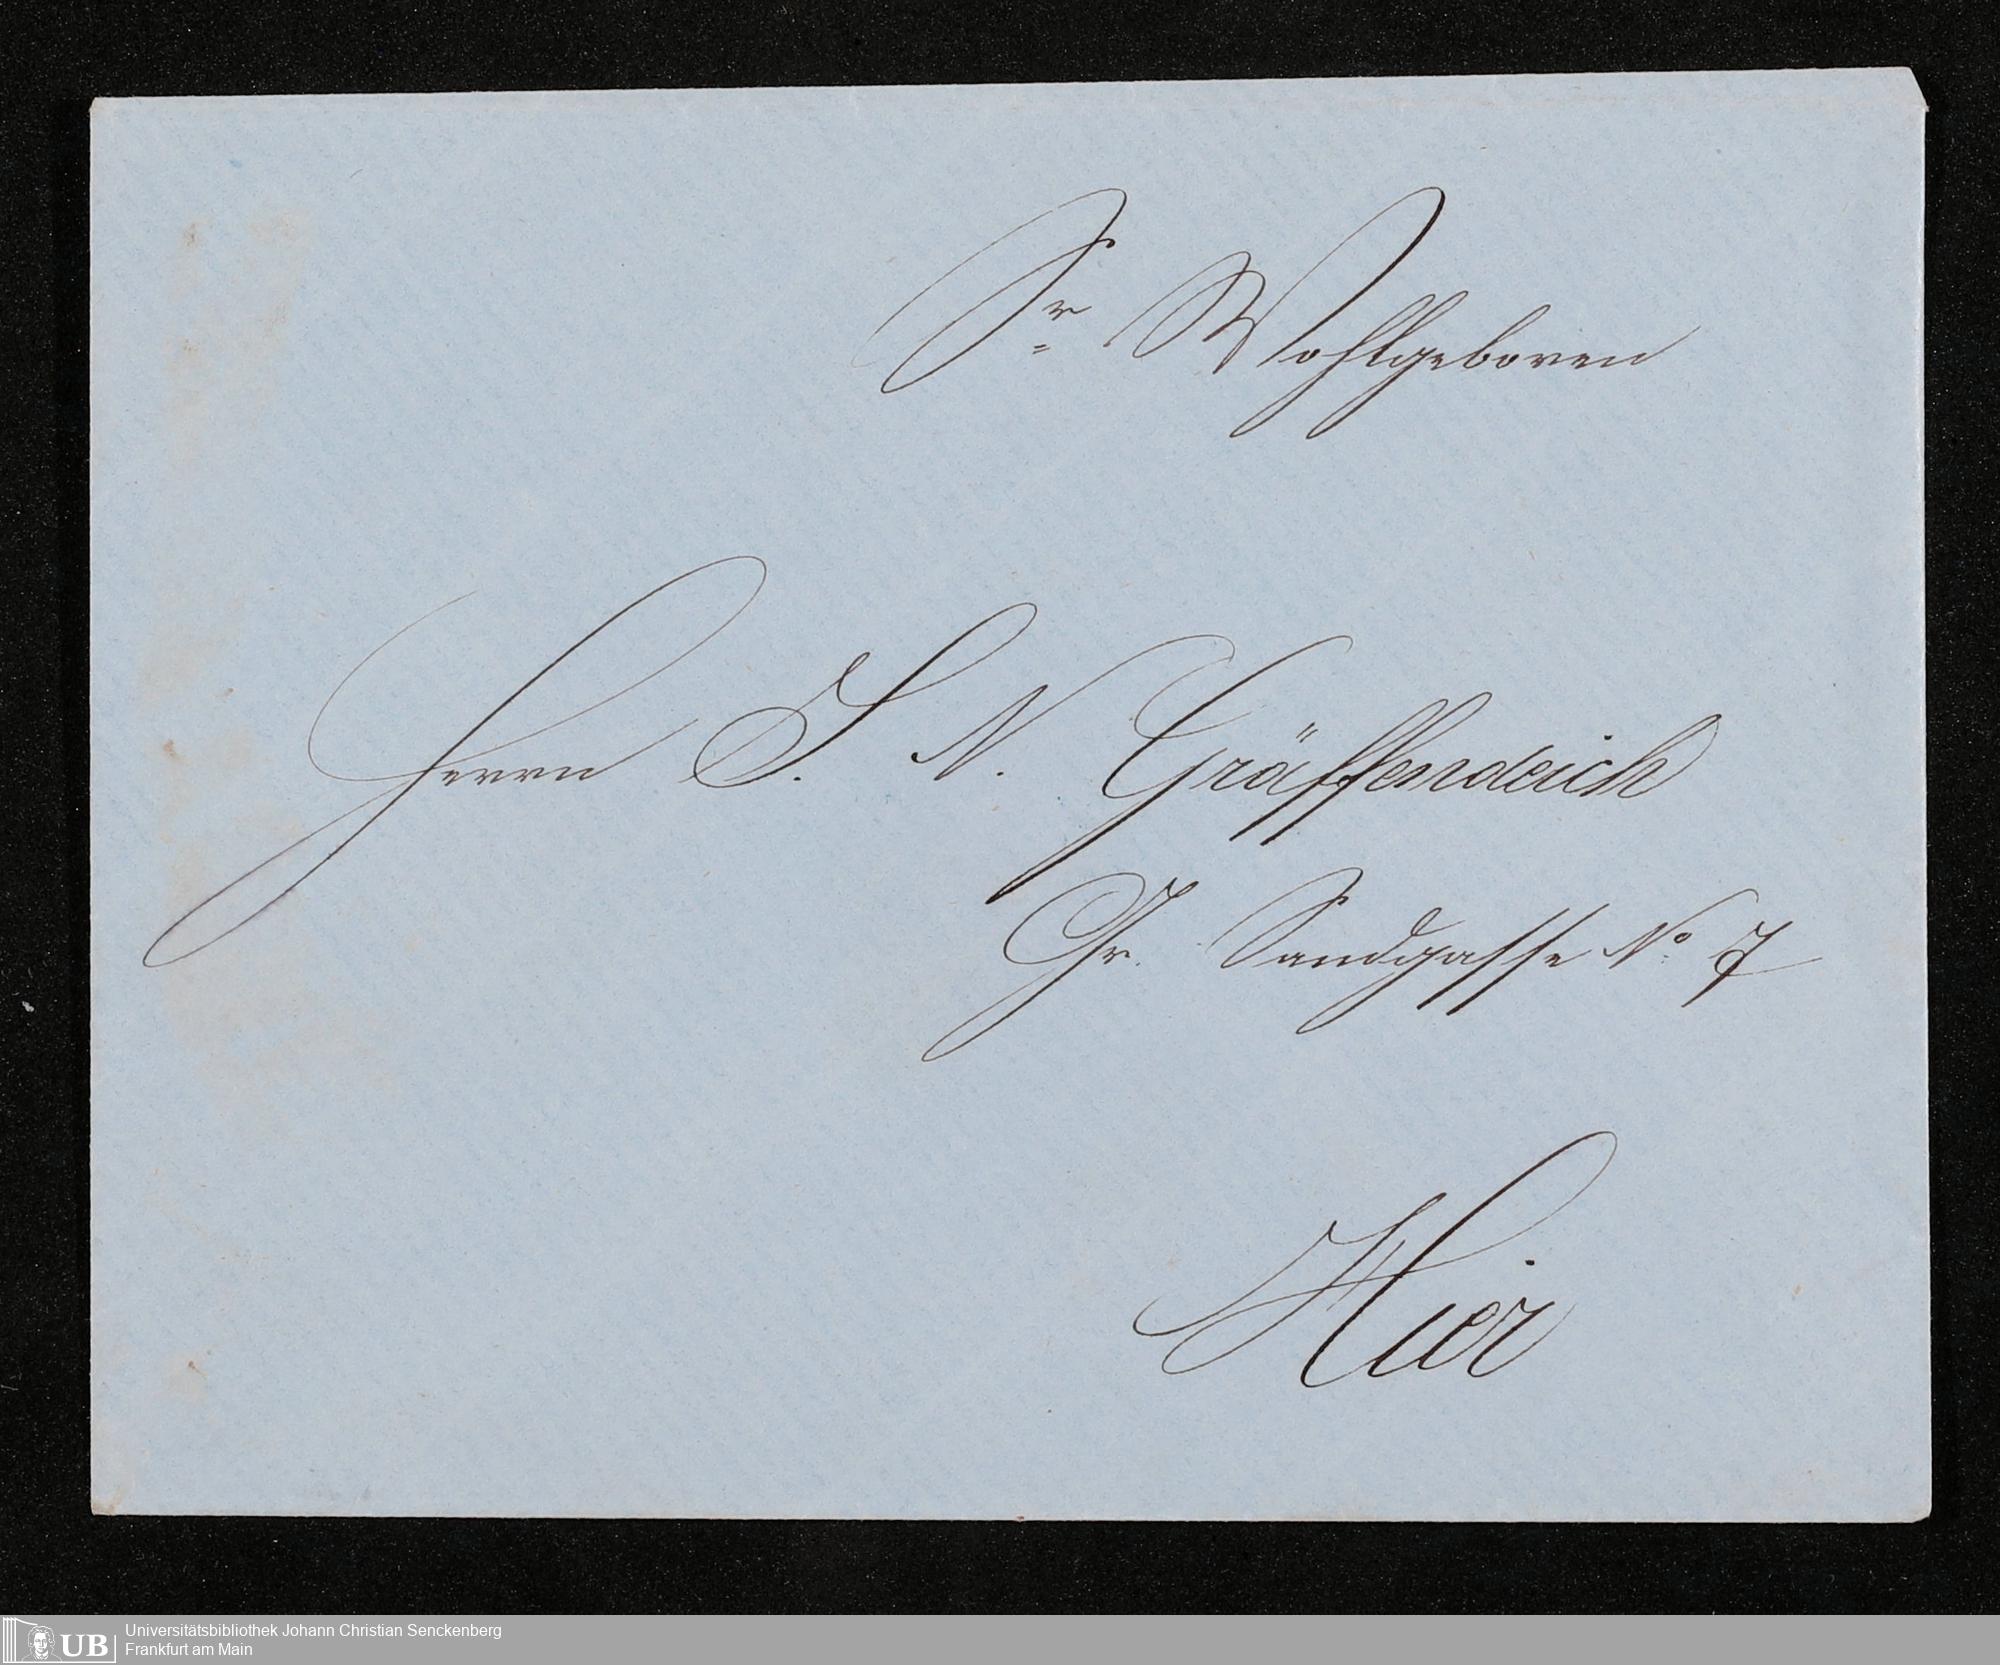 Sr Wohlgeboren
Herrn J. N. Gräffendeich
Gr. Sandgasse No. 7
Hier
UB
Universitätsbibliothek Johann Christian Senckenberg
Frankfurt am Main